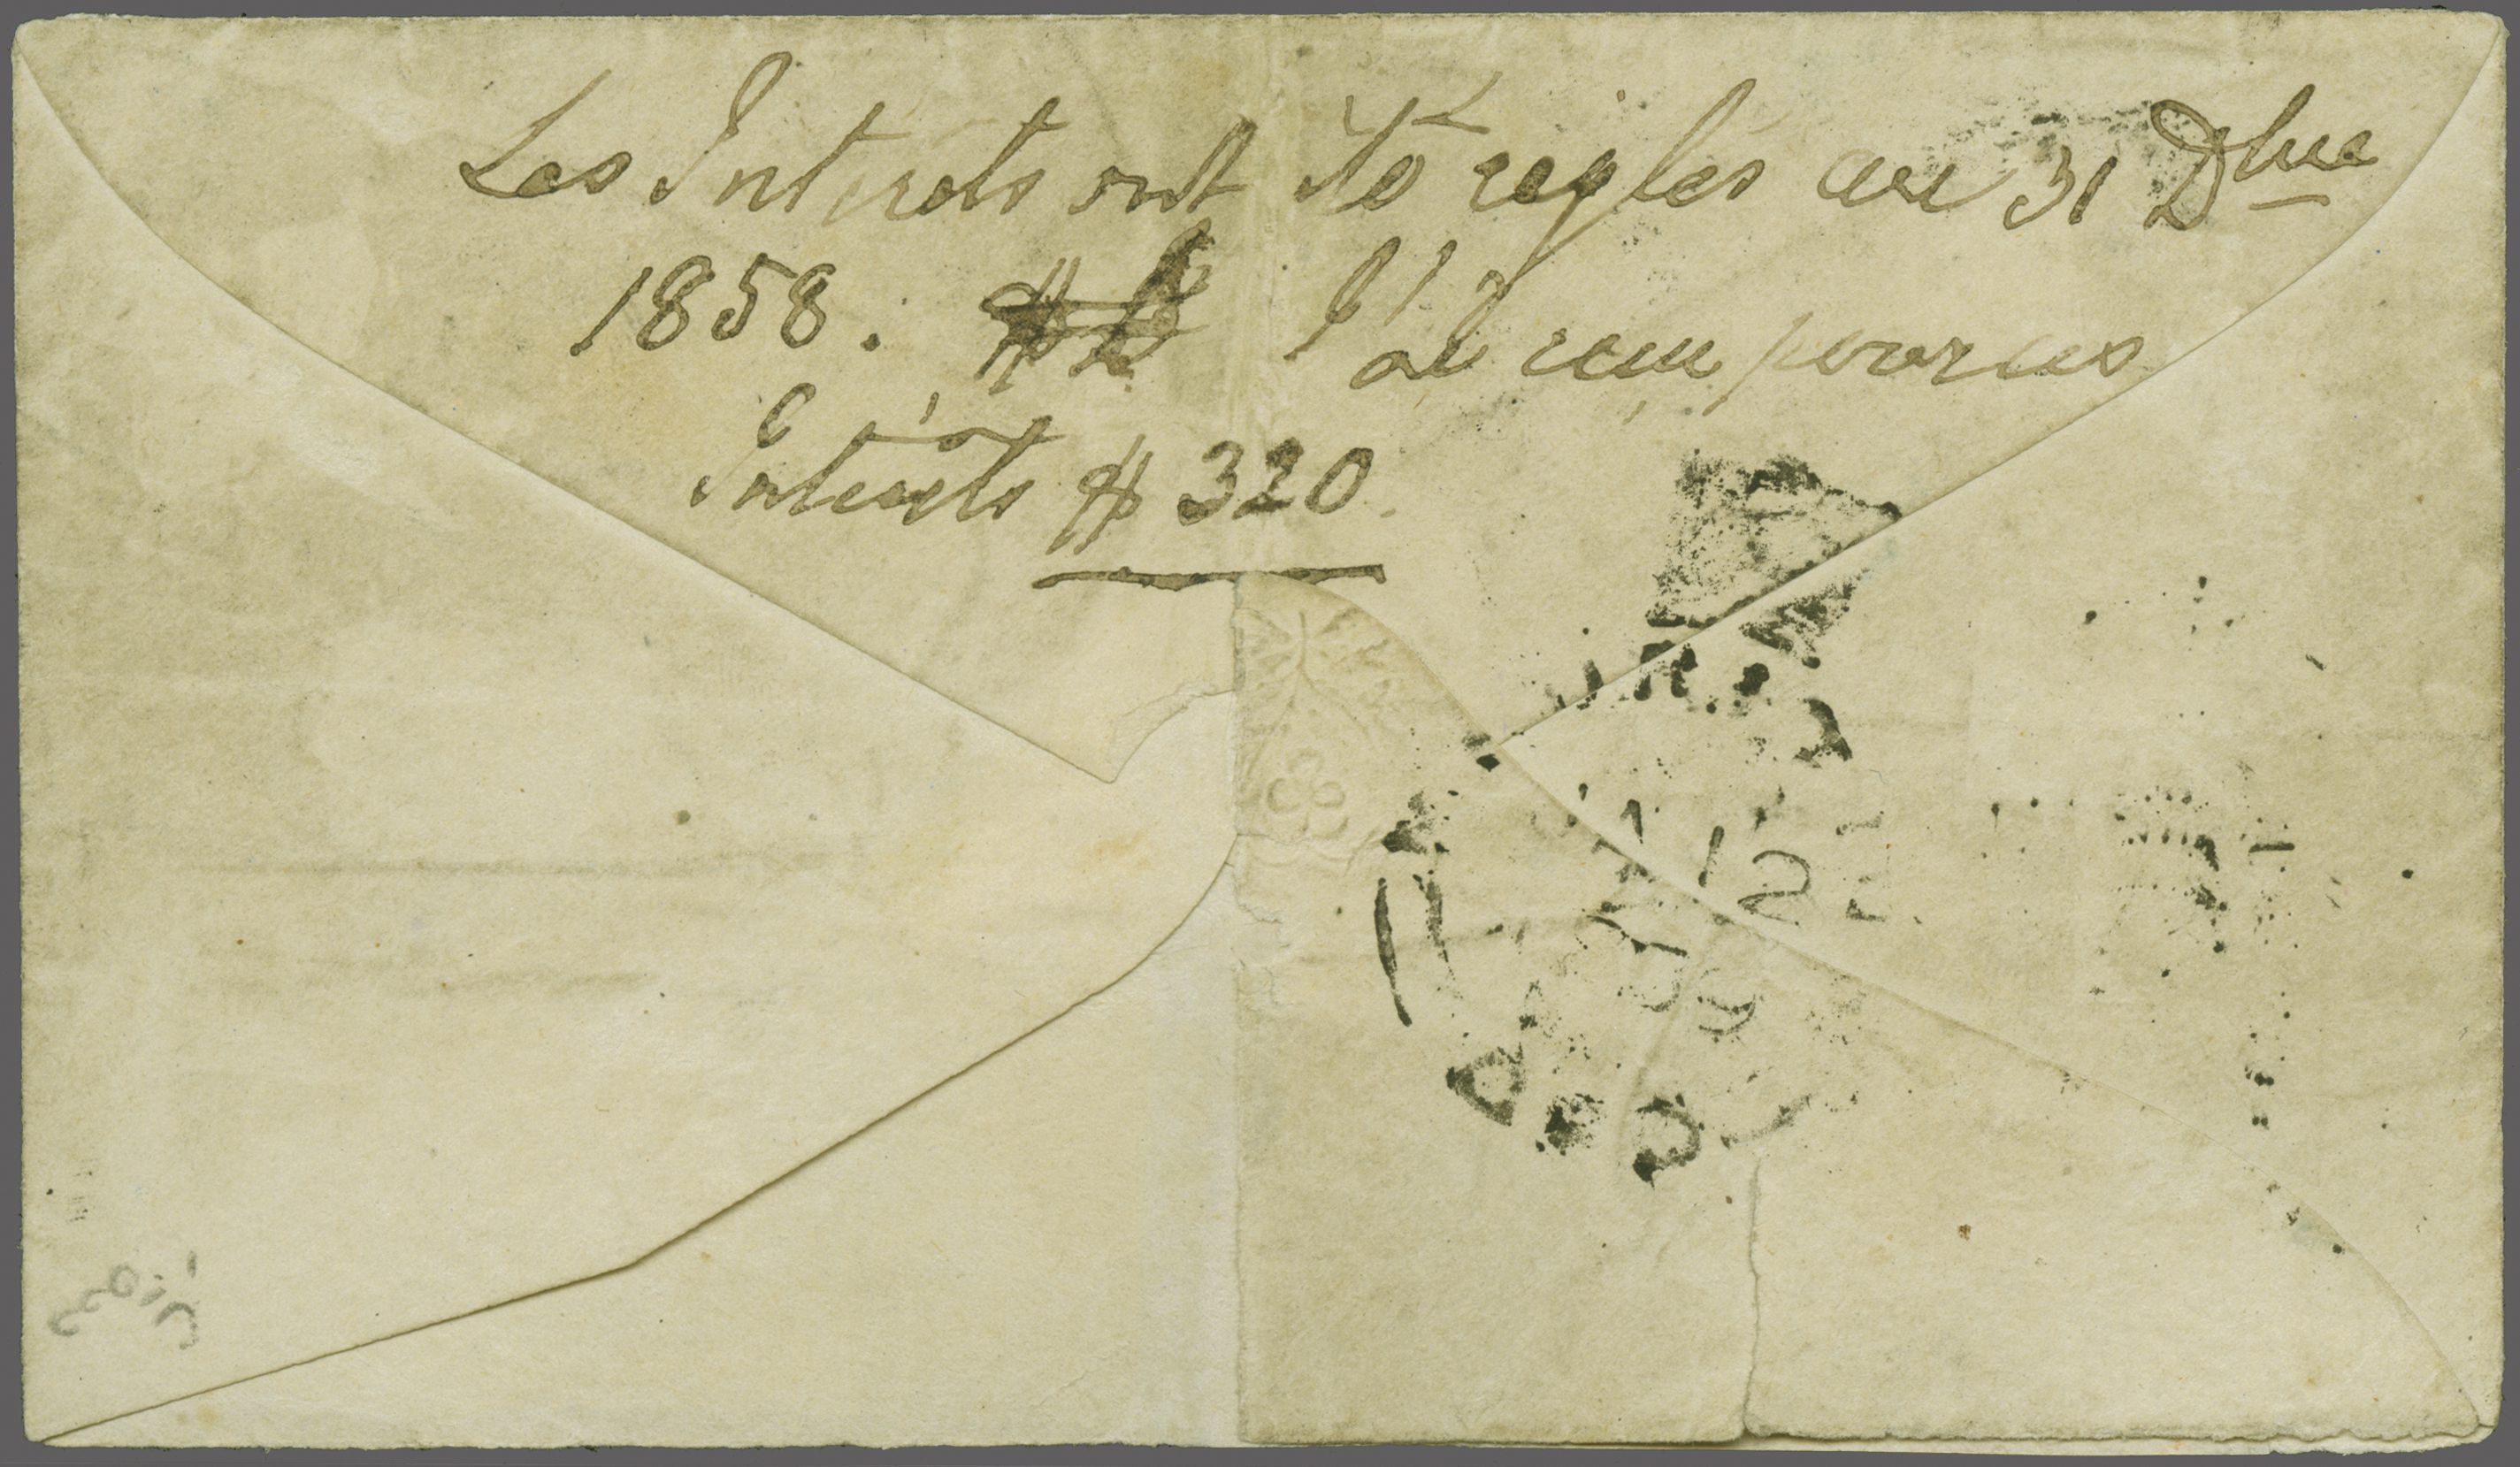 Les Intérets ont été reglés au 31 Dbre
1858. J'ai recu pour ces
Intérêts $ 320.